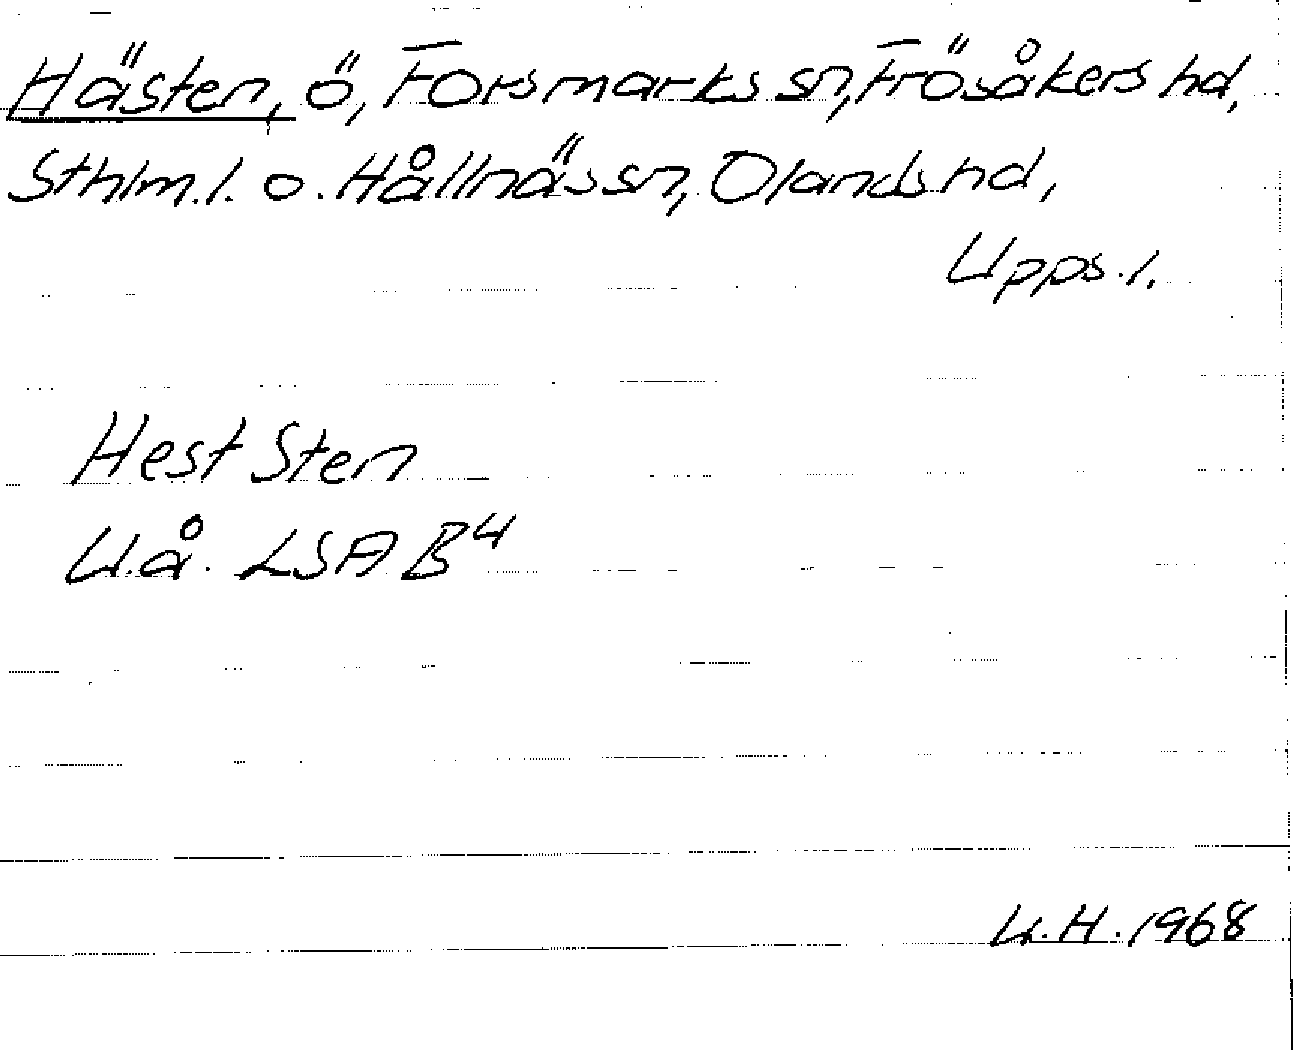 Hästen, ö, Forsmarks sn, Frösåkers hd,
Sthlm. l. o. Hållnäs sn, Olands hd,
Upps. l.
Hest Sten
U.å. LSA B4
U.H. 1968